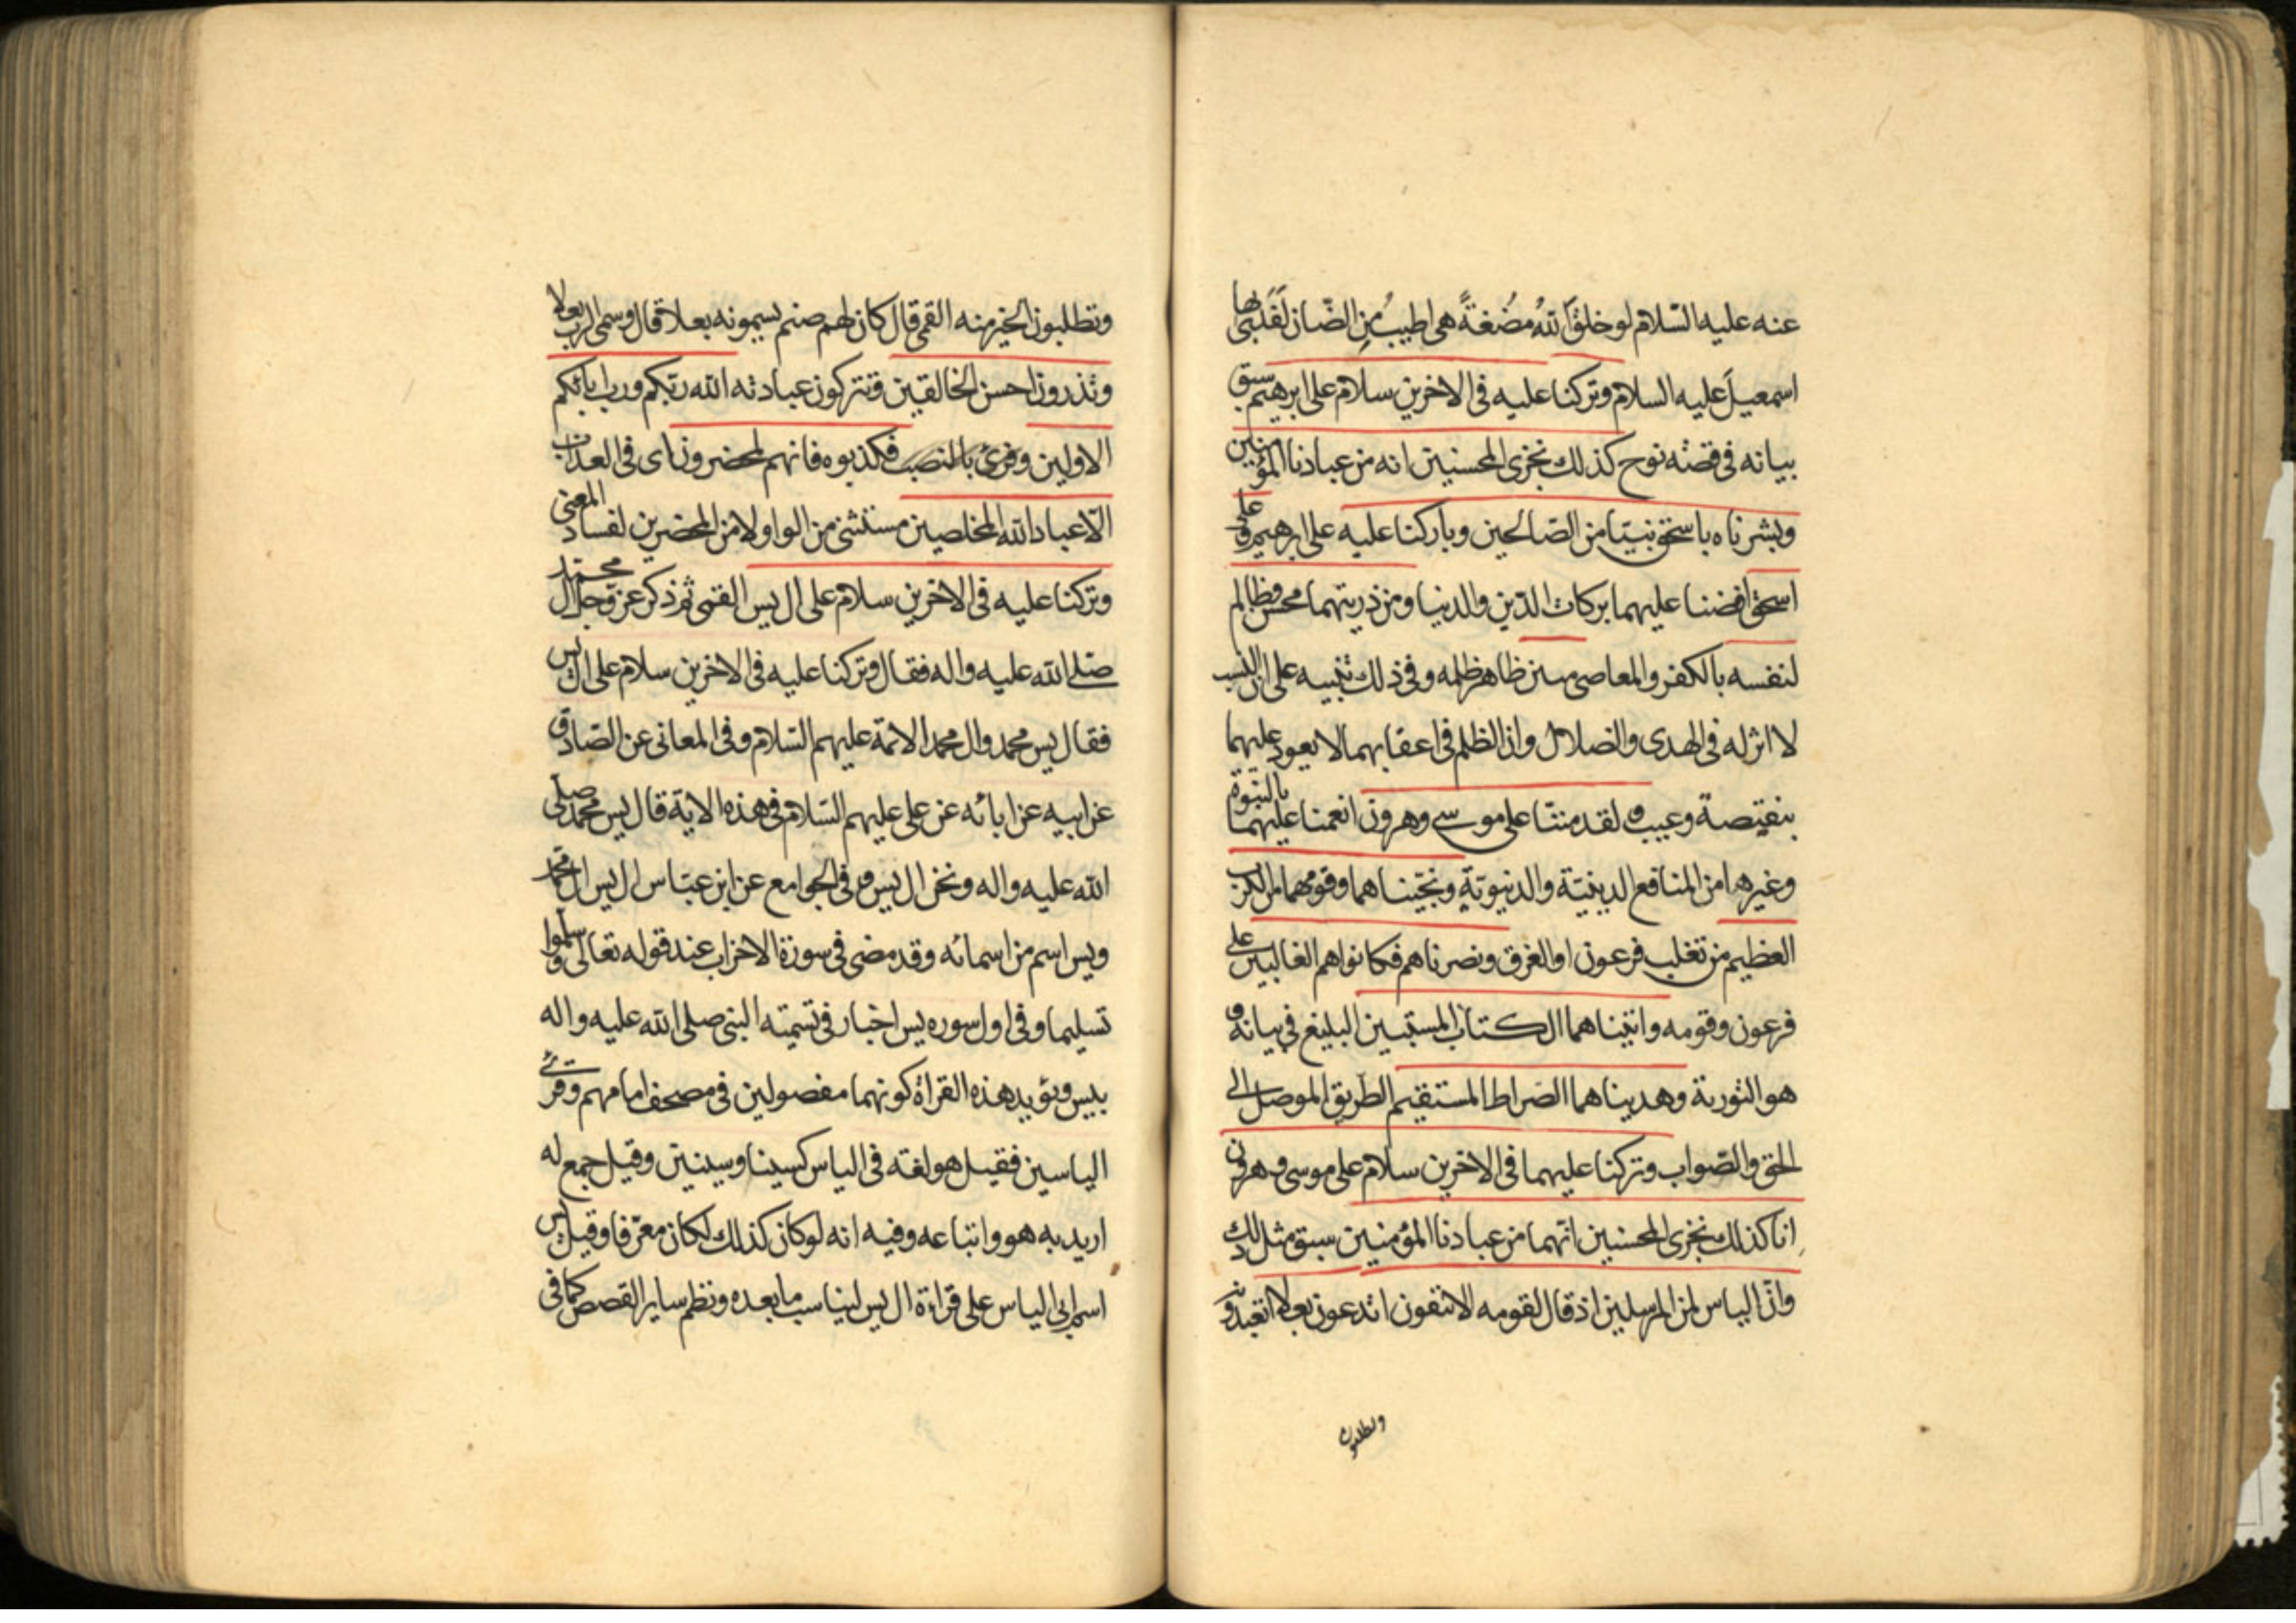 عنه عليه السّلام لو خلق اللهُ مُضُغةً هى اطيبُ مِن الضّان لَفَدَىٰ بها
اسمعيلَ عليه السلام وتركنا عليه فى الاخرين سلام على ابرهيم سبق
بيانه فى قصّة نوح كذلك نجزى المحسنين انه من عبادنا المؤمنين
وبشرناه باسحق نبيّا من الصّالحين وباركنا عليه على ابرهيم وعلى
اسحق افضنا عليهما بركات الدّين والدنيا ومن ذريتهما محسن وظالم
لنفسه بالكفر والمعاصى مبين ظاهر ظلمه وفى ذلك تنبيه على ان النسب
لا اثر له فى الهدى والضلال وان الظلم فى اعقابهما لا يعود عليهما
بنقيصة وعيب و لقد مننّا على موسى وهرون انعمنا عليهما بالنبوّة
وغيرها من المنافع الدينيّة والدنيويّة ونجّيناهما وقومهما من الكرب
العظيم من تغلب فرعون او الغرق ونصرناهم فكانوا هم الغالبين على
فرعون وقومه واتيناهما الكتاب المستبين البليغ فى بيانه و
هو التورية وهديناهما الصّراط المستقيم الطّريق الموصل الى
الحق والصّواب وتركنا عليهما فى الاخرين سلام على موسى وهرون
انا كذلك نجزى المحسنين انّهما من عبادنا المؤمنين سبق مثل ذلك
وانّ الياس لمن المرسلين اذ قال لقومه الا تتقون اتدعون بعلا اتعبدونه
وتطلبون
وتطلبون الخير منه القمى قال كان لهم صنم يسمونه بعلا قال وسمى الرب بعلا
وتذرون احسن الخالقين وتتركون عبادته الله ربّكم ورب ابائكم
الاولين وقرئ بالنصب فكذبوه فانهم لمحضرون اى فى العذاب
الّا عباد الله المخلصين مستثنى من الواو لا من المحضرين لفساد المعنى
وتركنا عليه فى الاخرين سلام على ال يس القمى ثم ذكر عزّ وجل ال محمّد
صلى الله عليه واله فقال وتركنا عليه فى الاخرين سلام على ال يس
فقال يس محمد وال محمد الائمة عليهم السّلام وفى المعانى عن الصّادق
عن ابيه عن ابائه عن على عليهم السّلام فى هذه الاية قال يس محمّد صلى
الله عليه واله ونحن ال يس و فى الجوامع عن ابن عبّاس ال يس ال محمّد
ويس اسم من اسمائه وقد مضى فى سورة الاحزاب عند قوله تعالى وسلّموا
تسليما وفى اول سوره يس اخبار فى تسميته النبى صلى الله عليه واله
بيس ويؤيد هذه القراة كونهما مفصولين فى مصحف امامهم وقرئ
الياسين فقيل هو لغته فى الياس كسينا وسينين وقيل جمع له
اريد به هو واتباعه وفيه انه لو كان كذلك لكان معرّفا وقيل يس
اسم ابى الياس على قراءة ال يس ليناسب ما بعده ونظم ساير القصص كما فى